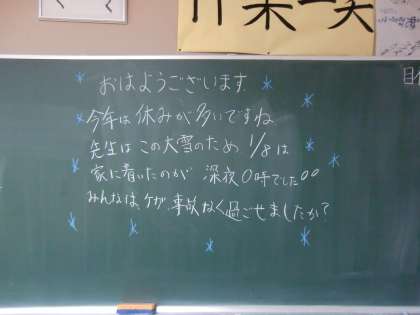 おはようございます.
今年は休みが多いですね
先生はこの大雪のため 1/8は
家に着いたのが 深夜0時でした。。
みんなは、ケガ、事故なく過ごせましたか?